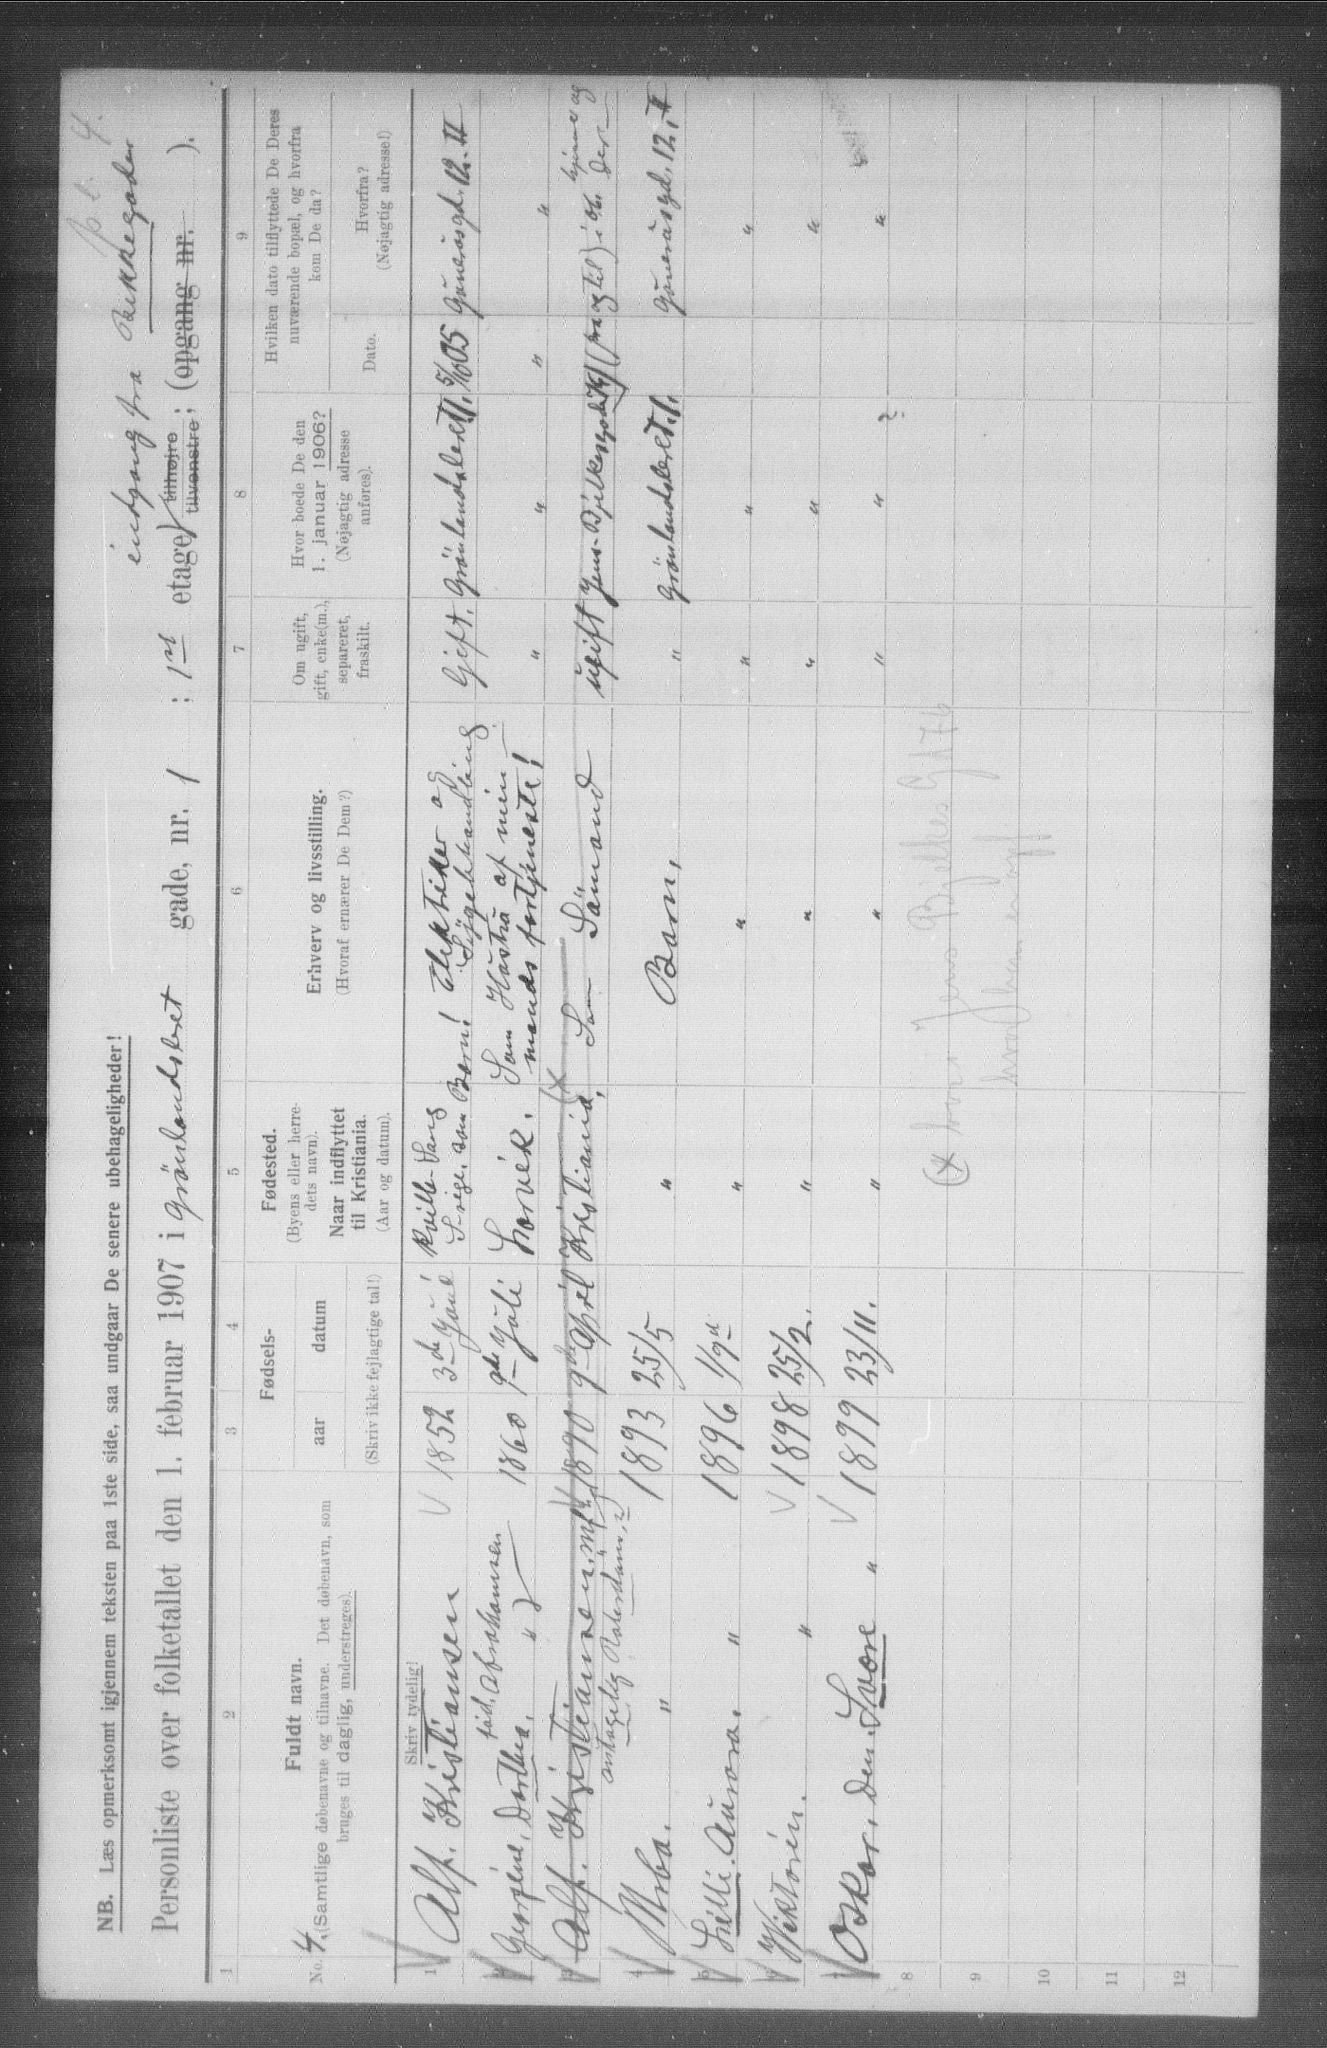 NB. Læs opmerksomt igjennem teksten paa 1ste side, saa undgaar De senere ubehageligheder!
indgang fra Rikkegaden
Personliste over folketallet den 1. februar 1907 i Grönlandsleret gade, nr. 1 ; 1ste etage, tilhøjre tilvenstre; (opgang nr. ).
1 2 3 4 5 6 7 8 9
No.
4.
Fuldt navn.
(Samtlige døbenavne og tilnavne. Det døbenavn, som
bruges til daglig, understreges).
Fødsels-
aar datum
(Skriv ikke fejlagtige tal!)
Fødested.
(Byens eller herre-
dets navn).
Naar indflyttet
til Kristiania.
(Aar og datum).
Erhverv og livsstilling.
(Hvoraf ernærer De Dem?)
Om ugift,
gift, enke(m.),
separeret,
fraskilt.
Hvor boede De den
1. januar 1906?
(Nøjagtig adresse
anføres).
Hvilken dato tilflyttede De Deres
nuværende bopæl, og hvorfra
kom De da?
Dato.
Hvorfra?
(Nøjagtig adresse!)
Skriv tydelig!
1 Alf. Kristiansen 1852 3de Juni Kville Sverige. som Barn! Elektriker og Gift. Grönlandsleret 1, 5/10 05 Gunerusgd. 12. II
2 Dorthea. född Abrahamsen 1860 9de Juli Larvik. Som Hustru af min mands fortjeneste! " " " "
3 Alf. Kristiansen. 1890 9de April Kristiania, (x Som Sömand ugift (fra og til)
antagelig
4 " 1893 25/5 " Barn, " Grönlandsleret. 1, Gunerusgd. 12, II
5 Lilli. Aurora. " 1896 " " " " "
6 Viktoria. " 1898 25/2. " " " " "
7 Oskar. Den. Svore " 1899 23/11. " " " " ? "
8
9
10
11
12
(x Jens Bjelkes G 17 b